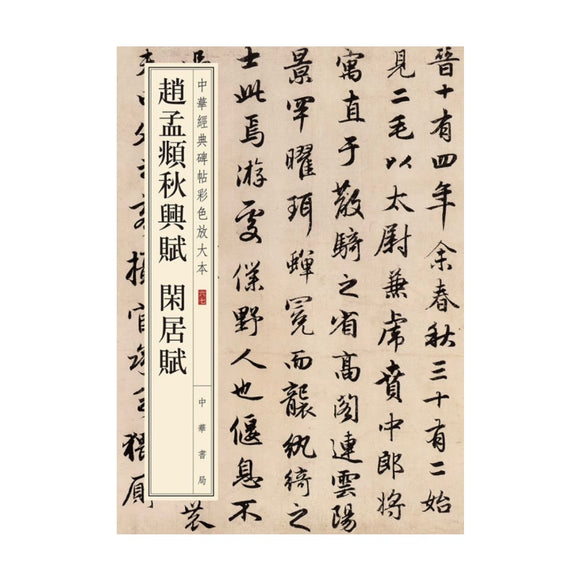 晉十有四年余春秋三十有二始
見二毛以太尉兼虎賁中郎將
寓直于散騎之省高閣連雲陽
景罕曜珥蟬冕而襲紈綺之
士此焉游處僕野人也偃息不
中華經典碑帖彩色放大本
六七
中華書局
趙孟頫秋興賦 閑居賦
攝官
猥厠